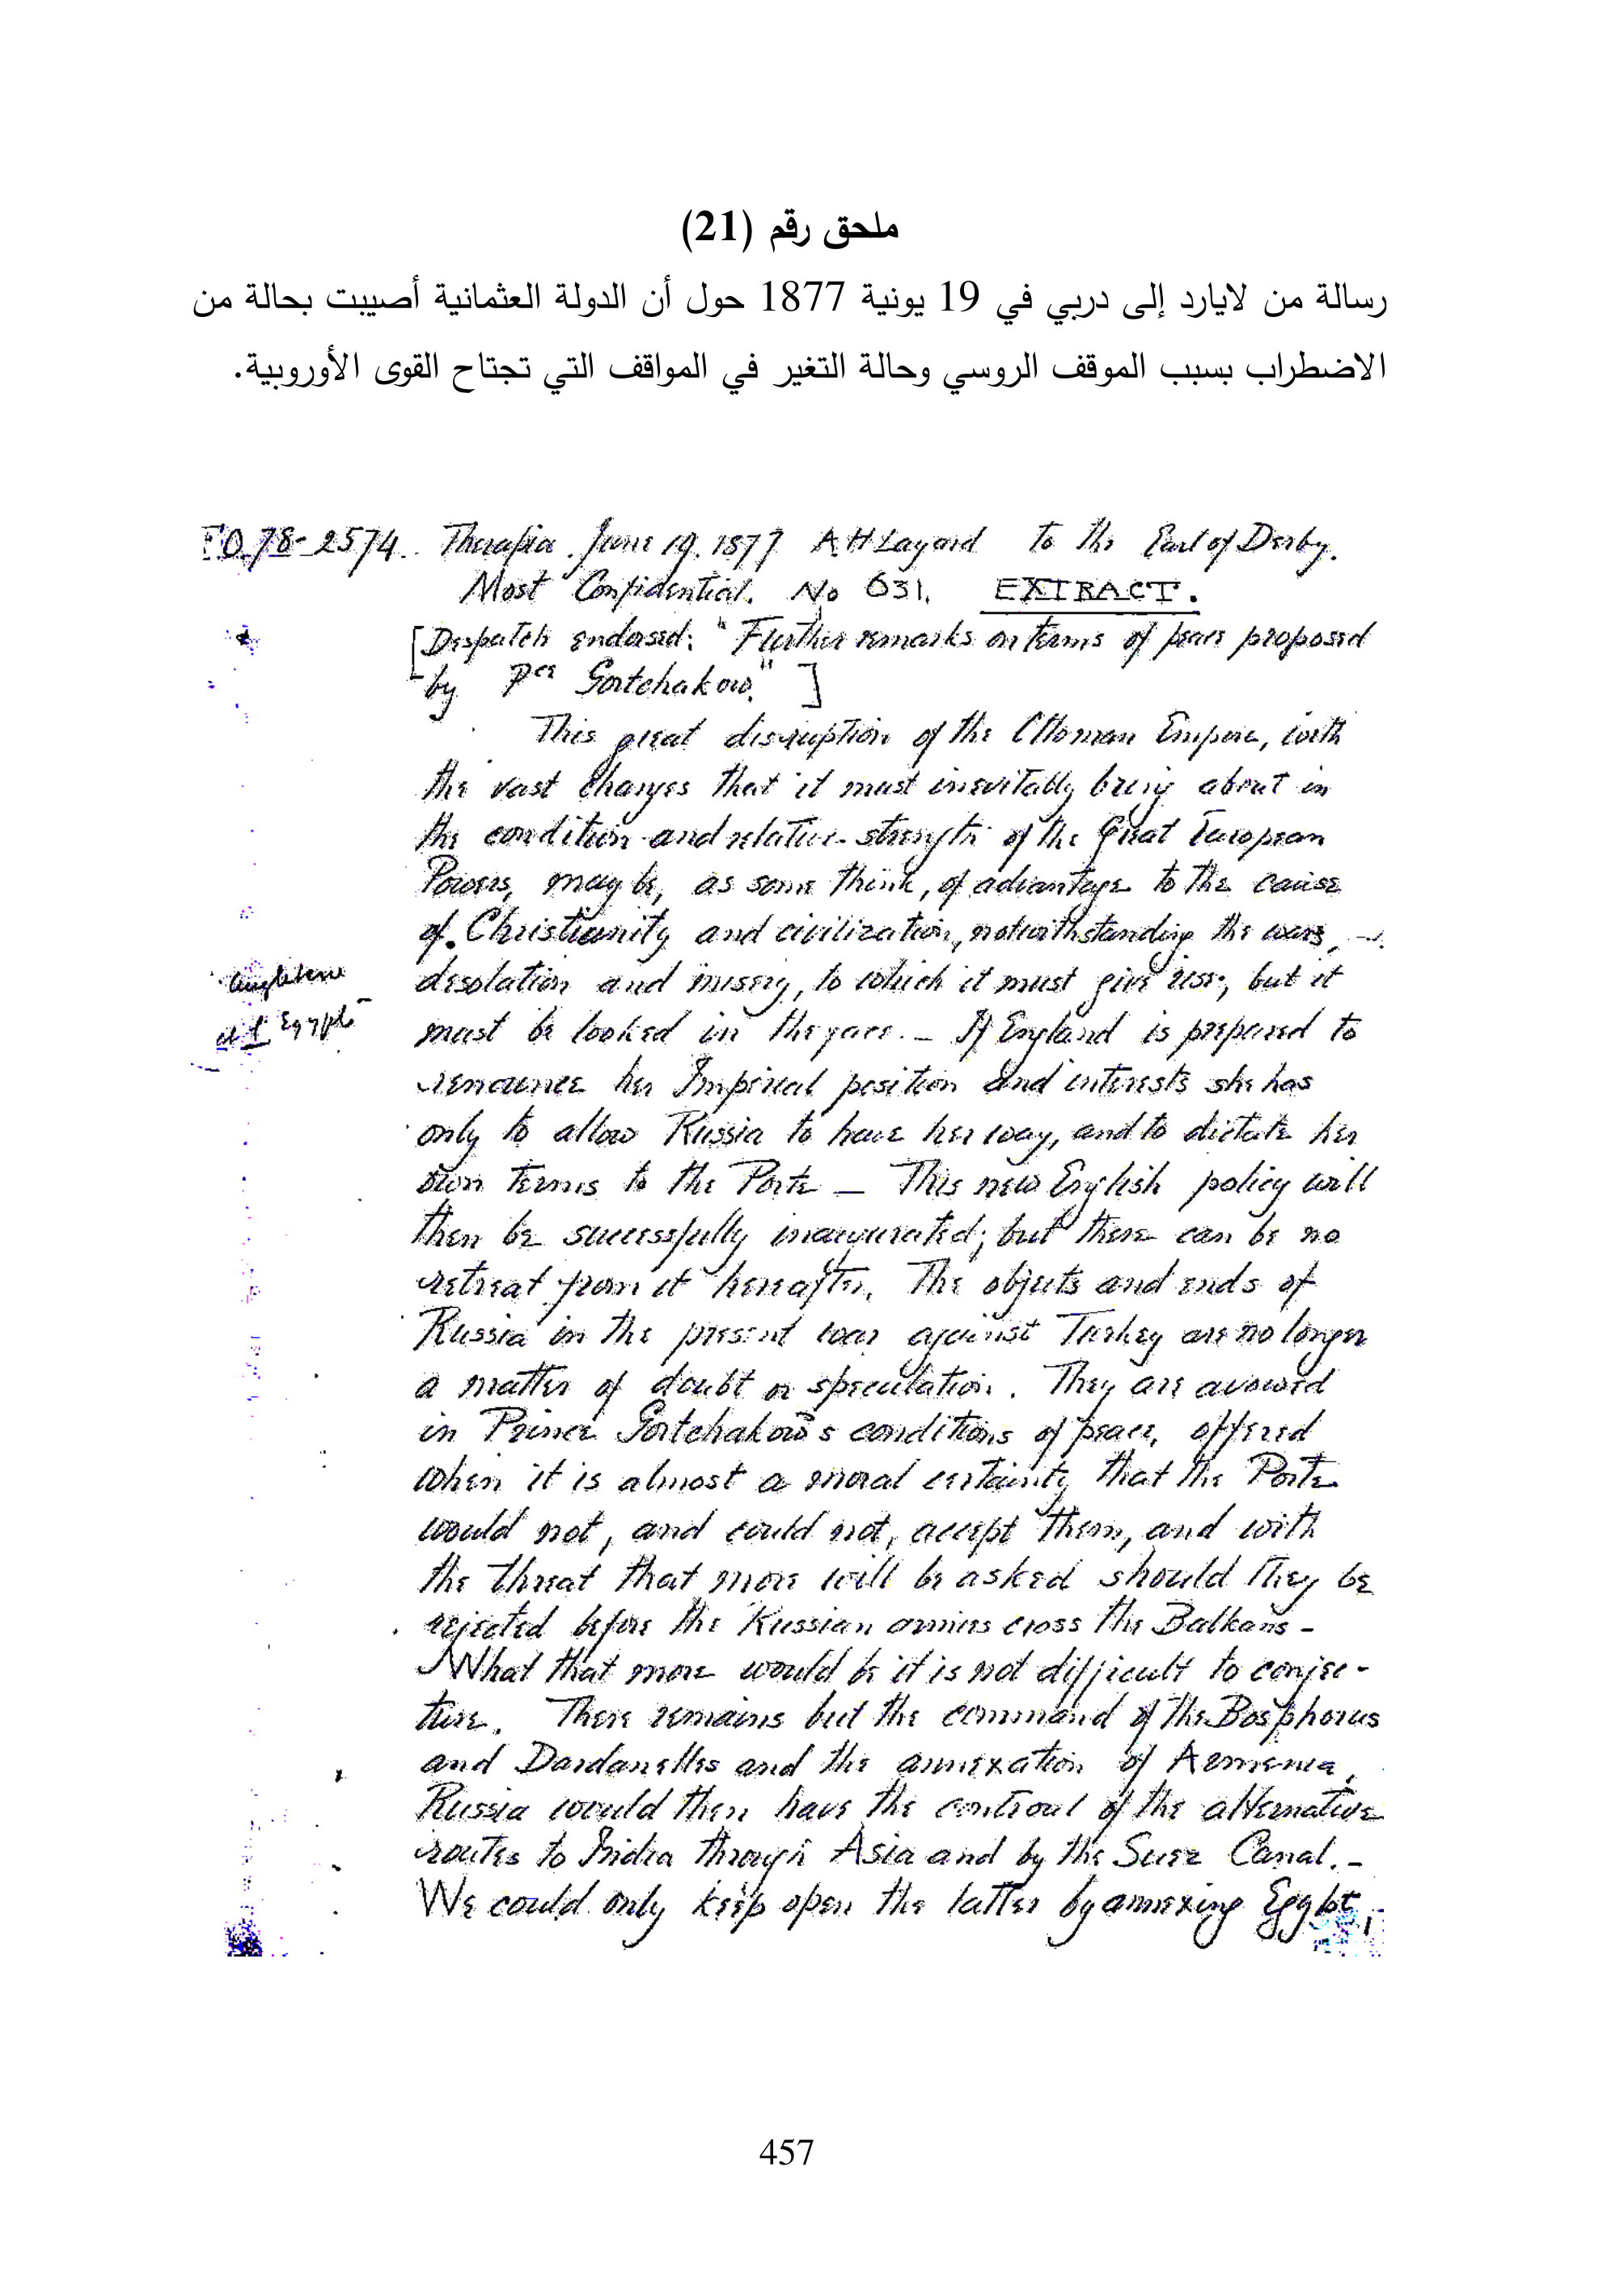 ملحق رقم (21)
رسالة من لايارد إلى دربي في 19 يونية 1877 حول أن الدولة العثمانية أصيبت بحالة من
الاضطراب بسبب الموقف الروسي وحالة التغير في المواقف التي تجتاح القوى الأوروبية.
F.O. 78-2574. Therapia. June 19. 1877 A H Layard to the Earl of Derby.
Most Confidential. No 631. EXTRACT.
[Despatch endorsed: "Further remarks on terms of peace proposed
by Pce Gortchakow."]
This great disruption of the Ottoman Empire, with
the vast changes that it must inevitably bring about in
the condition and relative strength of the Great European
Powers, may be, as some think, of advantage to the cause
of Christianity and civilization, notwithstanding the wars,
Angleterre
desolation and misery, to which it must give rise; but it
et l'Egypte
must be looked in the face. _ If England is prepared to
renounce her Imperial position and interests she has
only to allow Russia to have her way, and to dictate her
own terms to the Porte _ This new English policy will
then be successfully inaugurated; but there can be no
retreat from it hereafter. The objects and ends of
Russia in the present war against Turkey are no longer
a matter of doubt or speculation. They are avowed
in Prince Gortchakow's conditions of peace, offered
when it is almost a moral certainty that the Porte
would not, and could not, accept them, and with
the threat that more will be asked should they be
rejected before the Russian armies cross the Balkans -
What that more would be it is not difficult to conjec-
ture. There remains but the command of the Bosphorus
and Dardanelles and the annexation of Armenia.
Russia would then have the controul of the alternative
routes to India through Asia and by the Suez Canal. -
We could only keep open the latter by annexing Egypt,
457